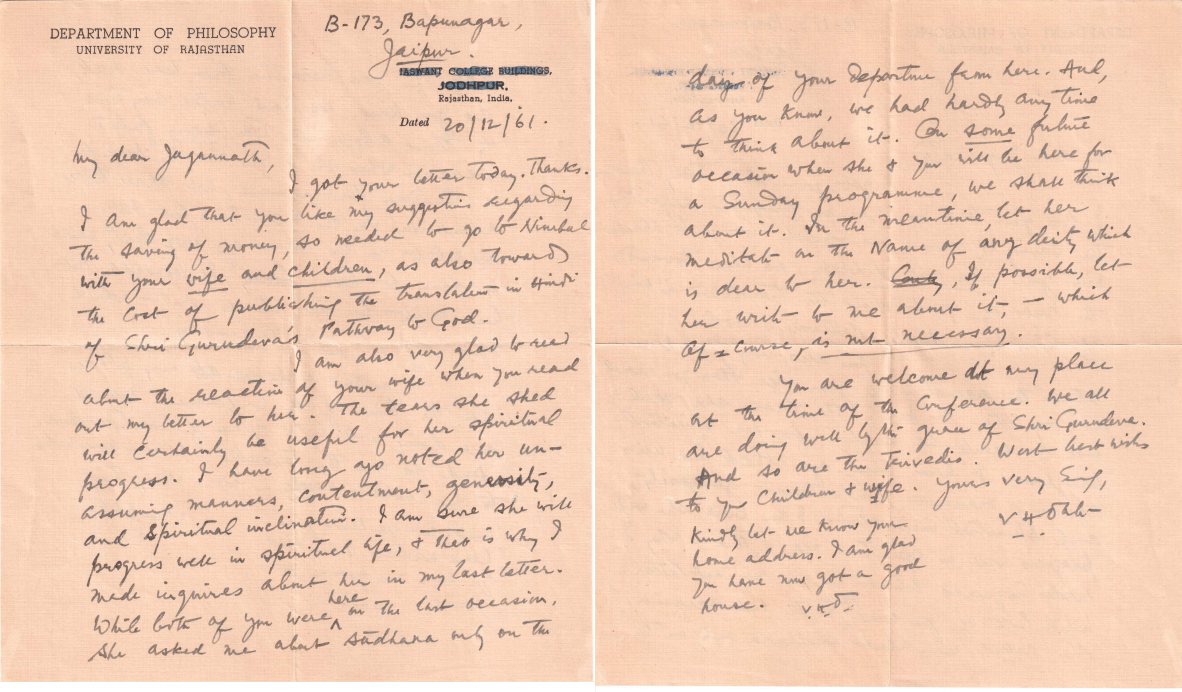 DEPARTMENT OF PHILOSOPHY
UNIVERSITY OF RAJASTHAN
B-173, Bapunagar,
Jaipur.
JASWANT COLLEGE BUILDINGS,
JODHPUR,
Rajasthan, India.
Dated 20/12/61.
My dear Jagannath,
I got your letter today. Thanks.
I am glad that you like my suggestion regarding
the saving of money, so needed to go to Nimbal
with your wife and children, as also towards
the cost of publishing the translation in Hindi
of Shri Gurudeva's Pathway to God.
I am also very glad to read
about the reaction of your wife when you read
out my letter to her. The tears she shed
will certainly be useful for her spiritual
progress. I have long ago noted her un-
assuming manners, contentment, generosity,
and spiritual inclination. I am sure she will
progress well in spiritual life, & that is why I
made inquiries about her in my last letter.
While both of you were here on the last occasion,
she asked me about Sadhana only on the
day of your departure from here. And,
as you know, we had hardly any time
to think about it. On some future
occasion when she & you will be here for
a Sunday programme, we shall think
about it. In the meantime, let her
meditate on the Name of any deity which
is dear to her. If possible, let
her write to me about it, — which
of course, is not necessary.
You are welcome at my place
at the time of the Conference. We all
are doing well by the grace of Shri Gurudeva.
And so are the Trivedis. With best wishes
to yr children & wife. Yours very Sly,
Kindly let me know your
home address. I am glad
you have now got a good
house.